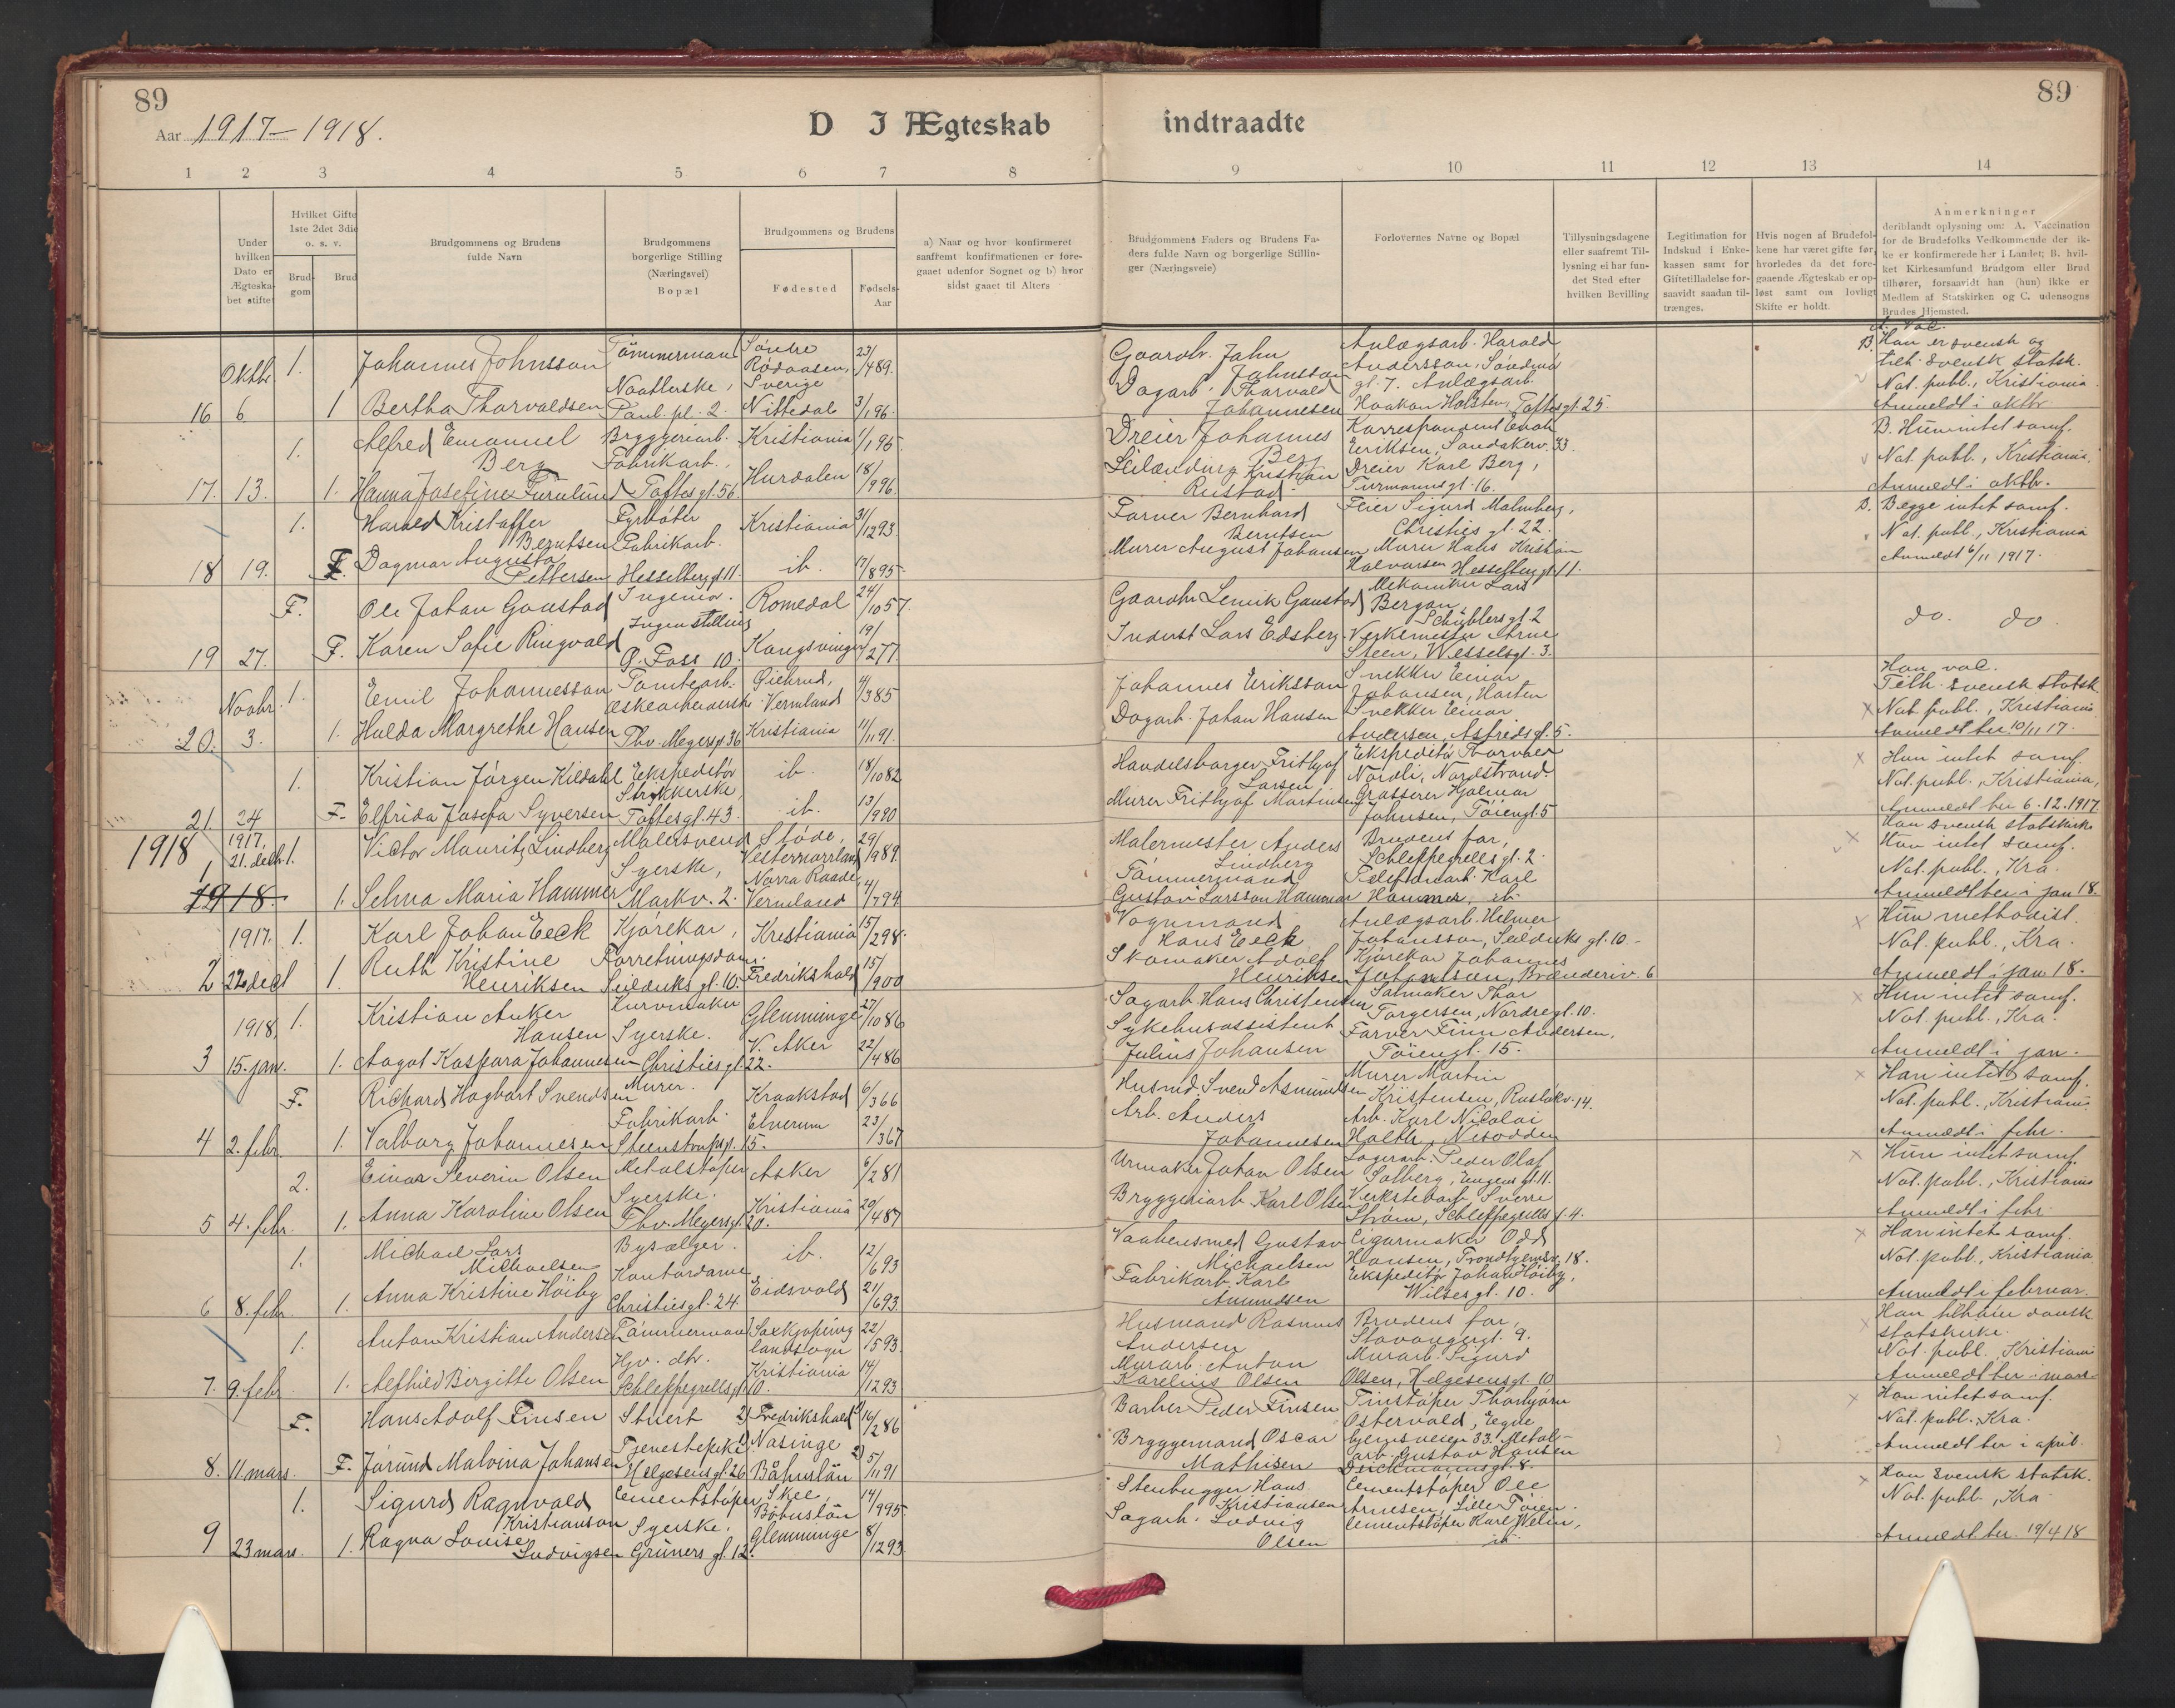 89
89
Aar 1917-1918.
D I Ægteskab indtraadte
1 2 3 4 5 6 7 8 9 10 11 12 13 14
Under hvilken Dato er Ægteskabet stiftet
Hvilket Gifte 1ste 2det 3die o. s. v.
Brudgom
Brud
Brudgommens og Brudens fulde Navn
Brudgommens borgerlige Stilling (Næringsvei) Bopæl
Brudgommens og Brudens
Fødested
Fødsels-Aar
a) Naar og hvor konfirmeret saafremt konfirmationen er foregaaet udenfor Sognet og b) hvor sidst gaaet til Alters
Brudgommens Faders og Brudens Faders fulde Navn og borgerlige Stillinger (Næringsveie)
Forlovernes Navne og Bopæl
Tillysningsdagene eller saafremt Tillysning ei har fundet Sted efter hvilken Bevilling
Legitimation for Indskud i Enkekassen samt for Giftetilladelse forsaavidt saadan tiltrænges.
Hvis nogen af Brudefolkene har været gifte før, hvorledes da det foregaaende Ægteskab er opløst samt om lovligt Skifte er holdt.
Anmerkninger
deriblandt oplysning om: A. Vaccination for de Brudefolks Vedkommende der ikke er konfirmerede her i Landet; B. hvilket Kirkesamfund Brudgom eller Brud tilhører, forsaavidt han (hun) ikke er Medlem af Statskirken og C. udensogns Brudes Hjemsted.
16 Oktbr. 6. 1. Johannes Johnsson Tömmermand Söndre Rödaasen, Sverige 23/4 89. Gaardbr. John Johnsson Anlægsarb. Harald Andersson, gl. 7. Anlægsarb.
A. Vac.
B. Han er svensk og tilh. svensk statsk.
1 Bertha Thorvaldsen Naatlerske, Paul. pl. 2. Nittedal 3/1 96. Dagarb. Thorvald Johannesen Haakon Holsten, Toftesgt. 25.
Not. publ., Kristiania
Anmeldt i oktbr.
17. 13. 1. Alfred Emanuel Berg Bryggeriarb. Kristiania 1/1 95 Dreier Johannes Berg Korrespondent Eriksen, Sandakerv. 33.
B. Hun intet samf.
1. Hanna Josefine Furulund Fabrikarb., Toftesgt. 56. Hurdalen 18/9 96. Kristian Rustad Dreier Karl Berg, Turmannsgt. 16.
Not. publ., Kristiania.
Anmeldt i oktbr.
18 19. 1. Harald Kristoffer Berntsen Fyrböter Kristiania 31/12 93. Farver Bernhard Berntsen Feier Sigurd Malmberg, Christies gt. 22.
B. Begge intet samf.
F. Dagmar Augusta Pettersen Fabrikarb. Hesselberggt. 11. ib. 17/8 95 Murer August Johansen Murer Hans Kristian Halvorsen Hesselberggt. 11.
Not. publ., Kristiania
Anmeldt 6/11 1917.
19 27. F. Ole Johan Gaustad Ingeniör. Romedal 24/10 57. Gaardbr. Lenvik Gaustad Mekaniker Lars Bergan, Schüblersgt. 2
do. do
F. Karen Sofie Ringvald Ingen stilling O. Foss 10. Kongsvinger 19/2 77. Lars Edsberg. Verkemester Arne Steen, Wesselsgt. 3.
20. Novbr. 3. 1. Emil Johannesson Tomtearb. Vermland 4/3 85 Johannes Eriksson Snekker Einar Johansen,
Han vac.
Tilh. svensk statsk.
1. Hulda Margrethe Hansen Æskearbeiderske Thv. Meyersgt. 36 Kristiania 11/11 91. Dagarb. Johan Hansen Snekker Einar Andersen, Asfridsgt. 5.
Not. publ., Kristiania
Anmeldt her 10/11 17.
21. 24 1. Kristian Jörgen Kildahl Ekspeditör ib. 18/10 82 Handelsborger Frithjof Larsen Ekspeditör Thorvald Nordli, Nordstrand.
Han intet samf.
F. Elfrida Josefa Syversen Strykkerske, Toftesgt. 43. ib. 13/9 90 Murer Frithjof Martinsen Grosserer Hjalmar Johnsen, Töiengt. 5
Not. publ., Kristiania,
Anmeldt her 6.12.1917
1918
1 1917, 21. decb. 1. Victor Mauritz Lindberg Malersvend Stöde, Vesternorrland 29/9 89. Malermester Anders Lindberg Brudens far, Schleppegrellsgt. 2.
Han svensk statskirke
Hun intet samf.
1918. 1. Selma Maria Hammer Syerske, Markv. 2. Norra Raade, Vermland 4/7 94 Tömmermand Gustav Larsson Hammer Telefonarb. Karl Hammer, ib.
Not. publ., Kra.
Anmeldt her i jan 18.
2 1917. 22 decb 1. Karl Johan Eeck Kjörekar, Kristiania 15/2 98. Vognmand Hans Eeck Anlægsarb. Helmer Johansson, Seilduks gt. 10.
Hun methodist.
1 Ruth Kristine Henriksen Forretningsdame. Seilduks gt. 10. Fredrikshald 15/9 00 Skomaker Adolf Henriksen Kjörekar Johannes Johansson, Brænderiv. 6
Not. publ., Kra.
Anmeldt i jan 18.
3 1918, 15. jan. 1. Kristian Anker Hansen Kurvmaker Glemminge 27/10 86 Sagarb. Hans Christensen Salmaker Thor Torgersen, Nordregt. 10.
Hun intet samf.
1. Aagot Kaspara Johannesen Syerske. Christies gt. 22. V. Aker 22/4 86 Sykehusassistent Julius Johansen Farver Finn Andersen, Töiengt. 15.
Not. publ., Kra.
Anmeldt i jan.
4 2. febr. F. Richard Hagbart Svendsen Murer. Kraakstad 6/3 66 Husmd. Svend Asmundsen Murer Martin Kristensen, Ruslökv. 14.
Han intet samf.
1. Valborg Johannesen Fabrikarb. Steenstrupsgt. 15. Elverum 23/3 67 Arb. Anders Johannesen Arb. Karl Nicolai Nesodden
Not. publ., Kristiania
Anmeldt i febr.
5 4. febr. 2. Einar Severin Olsen Metalstöper Asker 6/2 81 Urmaker Johan Olsen Lagerarb. Peder Olaf Solberg, Eugens gt. 11.
Hun intet samf.
1. Anna Karoline Olsen Syerske. Thv. Meyersgt. 20. Kristiania 20/4 87 Bryggeriarb. Karl Olsen Verkstedarb. Sverre Ström, Schleppegrells gt. 4.
Not. publ., Kristiania
Anmeldt i febr.
6 8. febr. 1. Michael Lars Michaelsen Bysælger. ib. 12/6 93 Vaabensmed Gustav Michaelsen Cigarmaker Odd Hansen, Trondhjemsv. 18.
Han intet samf.
1. Anna Kristine Höiby Kontordame Christiesgt. 24. Eidsvold 21/6 93. Fabrikarb. Karl Amundsen Ekspeditör Johan Höiby, Wilsesgt. 10.
Not. publ., Kristiania
Anmeldt i februar.
7. 9. febr. 1. Anton Kristian Andersen Tömmermand Saxkjøping landsogn 22/5 93. Husmand Rasmus Andersen Brudens far, Stavangergt. 9.
Han tilhører dansk statskirke.
1. Alfhild Birgitte Olsen Hjv. dtr. Schleppegrellsgt. 10. Kristiania 14/12 93 Murarb. Anton Karelius Olsen Murarb. Sigurd Olsen, Helgesensgt. 10
Not. publ. Kristiania
Anmeldt her i mars
8. 11. mars. F. Hans Adolf Finsen Stuert 2) Fredrikshald 16/2 86 Barber Peder Finsen Tinstöper Thorbjörn Ostervold, Egne hjemsveien 33.
Han intet samf.
F. Jörund Malvina Johansen Tjenestepike Helgesens gt. 26 1) Nasinge Båhuslän 2) 5/11 91 Bryggemand Oscar Mathisen Metalarb. Gustav Hansen Deichmannsgt. 8.
Not. publ. Kra.
Anmeldt her i april.
9 23 mars. 1. Sigurd Ragnvald Kristiansson Cementstöper Skee, Böhuslän 14/9 95. Stenhugger Hans Kristiansen Cementstöper Ole Arnesen, Lille Töien.
Han svensk statsk.
1. Ragna Lovise Ludvigsen Syerske. Grüners gt. 12. Glemminge 8/12 93 Sagarb. Ludvig Olsen Cementstöper Karl Welin, ib.
Not. publ., Kra
Anmeldt her 19/4 18